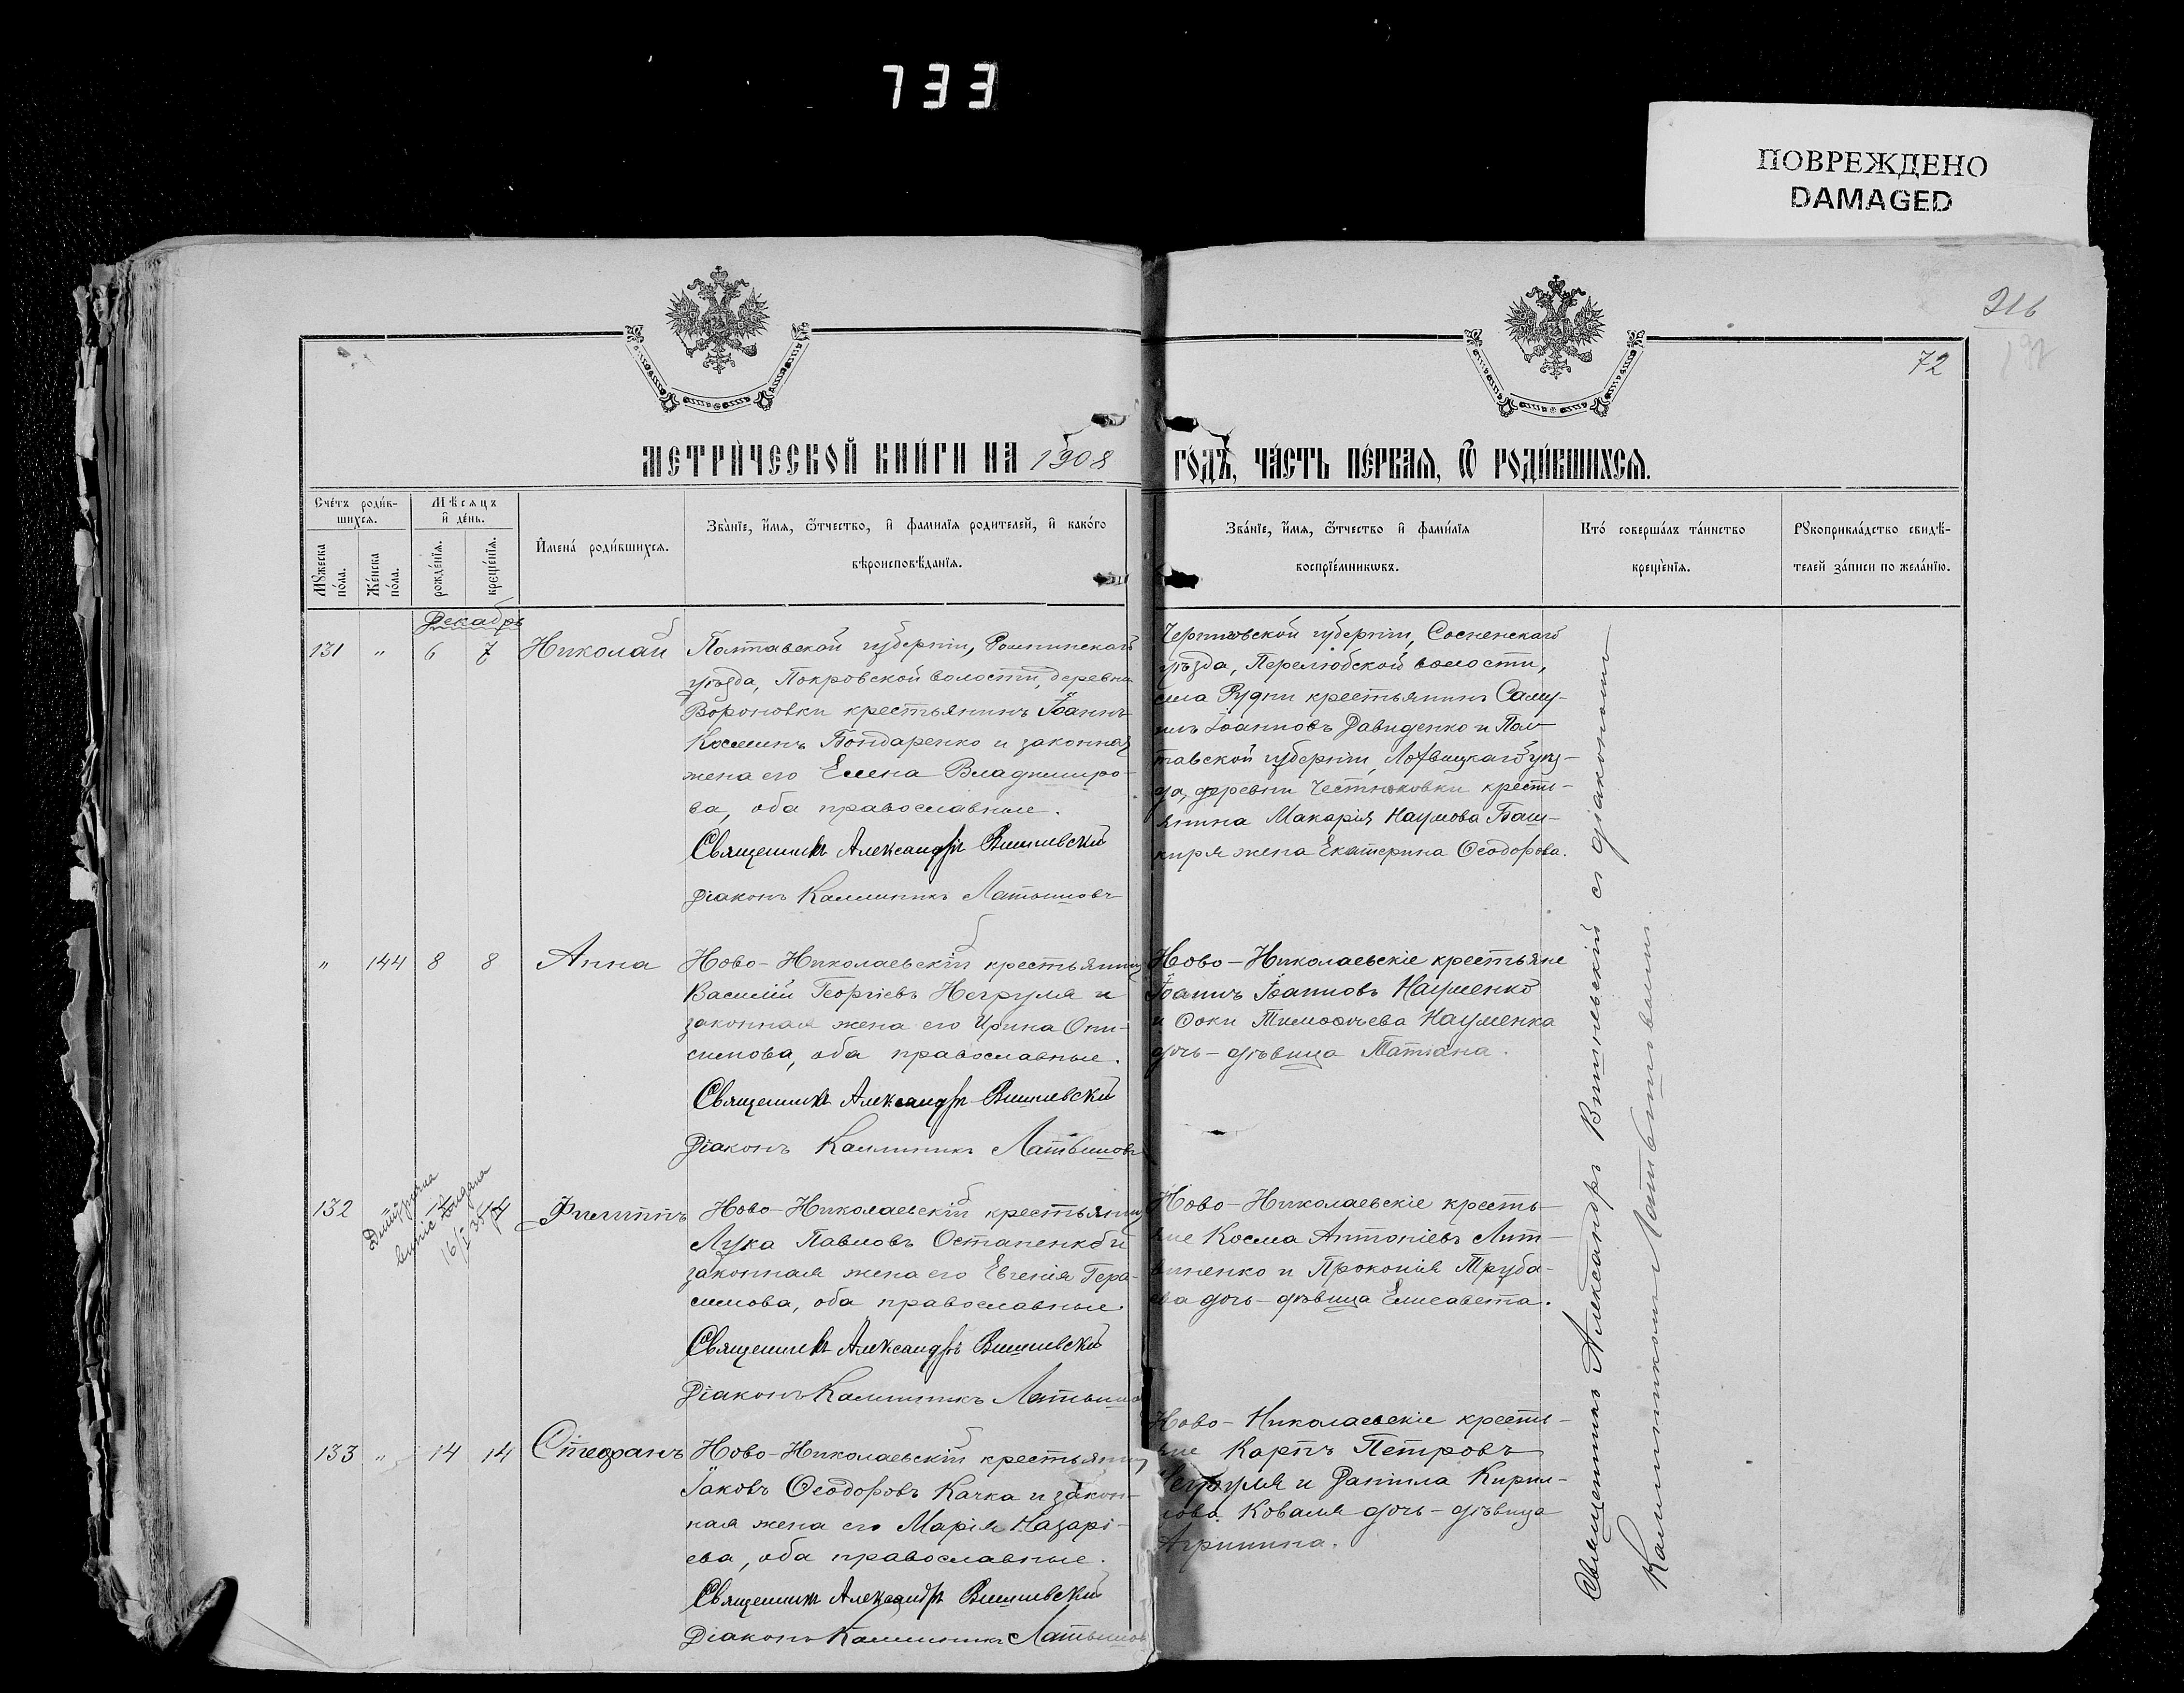 733
ПОВРЕЖДЕНО
DAMAGED
216
72
МЕТРИ́ЧЕСКОЙ КНИ́ГИ НА 1908 ГО́ДЪ, ЧА́СТЬ ПЕ́РВАѦ, Ѿ РОДИ́ВШИХСѦ.
Сче́тъ роди́в-
шихсѧ.
Мѣсѧцъ
и҆ де́нь.
Мꙋжеска
по́ла.
Же́нска
по́ла.
рожде́нїѧ.
креще́нїѧ.
И҆мена́ роди́вшихсѧ.
Зва́нїе, и҆́мѧ, ѻ҆́тчество, и҆ фами́лїѧ роди́телей, и҆ како́го
вѣроисповѣ́данїѧ.
Зва́нїе, и҆́мѧ, ѻ҆́тчество и҆ фами́лїѧ
воспрїе́мникѡвъ.
Кто́ соверша́лъ та́инство
креще́нїѧ.
Рꙋкоприкла́дство свидѣ́-
телей за́писи по жела́нїю.
Декабрь
131 " 6 7 Николай
Полтавской губерніи, Роменскаго
уѣзда, Покровской волости, деревни
Вороновки крестьянинъ Іоаннъ
Косминъ Бондаренко и законная
жена его Елена Владимиро-
ва, оба православные.
Священникъ Александръ Вишневскій
Діаконъ Каллиникъ Латышовъ
Черниговской губерніи, Сосненскаго
уѣзда, Перелюбской волости,
села Рудни крестьянинъ Саму-
илъ Іоанновъ Давиденко и Пол-
тавской губерніи, Лохвицкаго уѣз-
да, деревни крестья-
янина Макарія Наумова Баш-
киря жена Екатерина Ѳеодорова.
" 144 8 8 Анна
Ново-Николаевскій крестьянинъ
Василій Георгіевъ Негруля и
законная жена его Ирина Они-
симова, оба православные.
Священникъ Александръ Вишневскій
Діаконъ Каллиникъ Латышовъ
Ново-Николаевскіе крестьяне
Іоаннъ Іоанновъ Науменко
и Ѳоки Тимоѳеева Науменка
дочь-дѣвица Татіана.
132 14 Филиппъ
выпис выдана
16/I 35
Ново-Николаевскій крестьянинъ
Лука Павловъ Остапенко и
законная жена его Евгенія Гера-
симова, оба православные.
Священникъ Александръ Вишневскій
Діаконъ Каллиникъ Латышовъ
Ново-Николаевскіе кресть-
яне Косма Антоніевъ Лит-
виненко и Прокопія Труба-
ева дочь-дѣвица Елисавета.
133 " 14 14 Стефанъ
Ново-Николаевскій крестьянинъ
Іаковъ Ѳеодоровъ Качка и закон-
ная жена его Марія Назарі-
ева, оба православные.
Священникъ Александръ Вишневскій
Діаконъ Каллиникъ Латышовъ
Ново-Николаевскіе кресть-
яне Карпъ Петровъ
Негруля и Даніила Кирил-
лова Коваля дочь-дѣвица
Агриппина.
Священникъ Александръ Вишневскій съ діакономъ
Каллиникомъ Латышовымъ.